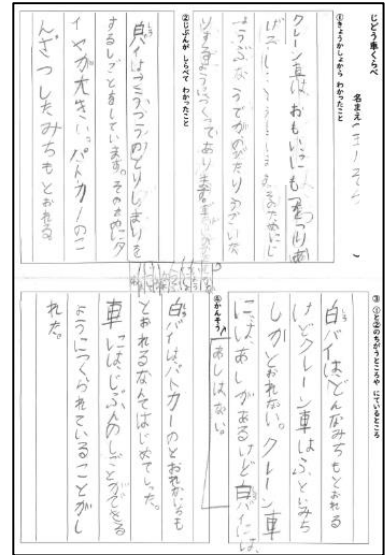 じどう車くらべ
名まえ
①きょうかしょから わかったこと
クレーン車は、おもいにもつをつりあ
げる
じょうぶなうでがのびたりうごいた
りするようにつくってあります。
②じぶんが しらべて わかったこと
白バイはこうつうのとりしまりを
するしごとをしています。そのためにタ
イヤが大きい。パトカーのこ
んざつしたみちもとおれる
③ ①と②のちがうところや にているところ
白バイは、どんなみちもとおれる
けどクレーン車はふといみち
しかとおれない。クレーン車
には、あしがあるけど白バイには、
あしはない。
④かんそう
白バイは、パトカーのとおれないみちも
とおれるなんてはじめてしった。
車には、じぶんのしごとができる
ようにつくられていることがし
れた。